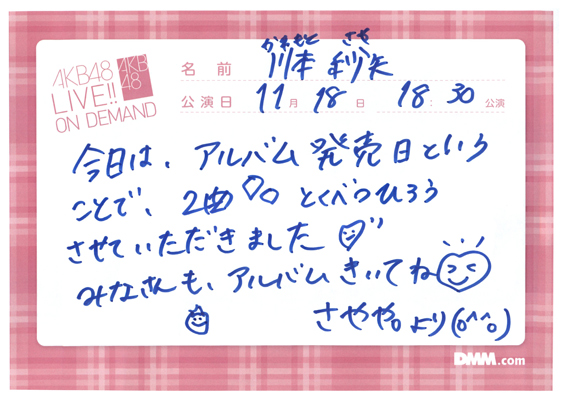 AKB48
LIVE!!
ON DEMAND
AKB
48
かわもと さや
名前 川本 紗矢
公演日 11月 18日 18:30 公演
今日は、アルバム発売日という
ことで、2曲 とくべつひろう
させていただきました
みなさんも、アルバムきいてね
さややより(o^^o)
DMM.com